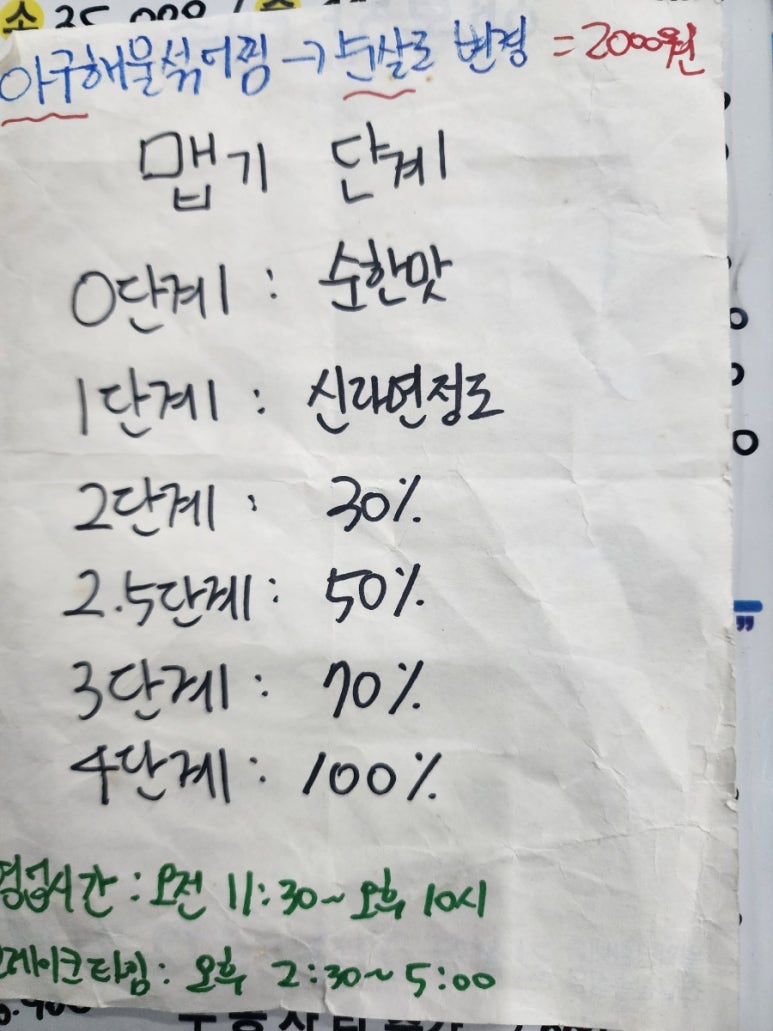 소 35,000 /
아구해물섞어찜 → 순살로 변경 = 2000원
맵기 단계
0단계 : 순한맛
1단계 : 신라면정도
2단계 : 30%
2.5단계 : 50%
3단계 : 70%
4단계 : 100%
영업시간 : 오전 11:30~오후 10시
브레이크타임 : 오후 2:30~5:00